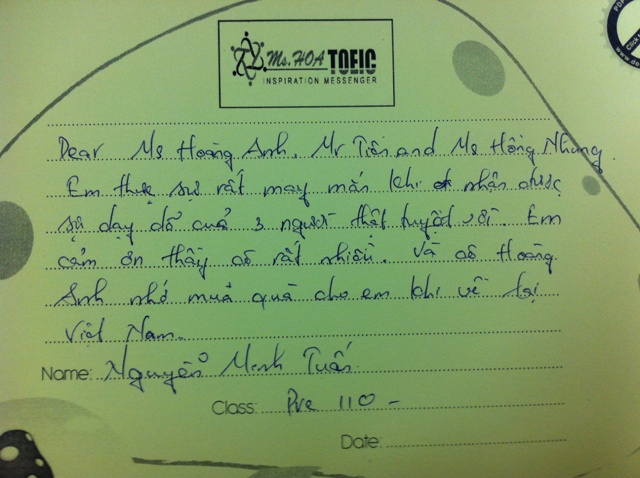 Ms. HOA TOEIC
INSPIRATION MESSENGER
Dear Ms Hoàng Anh, Mr Tiến and Ms Hồng Nhung
Em thực sự rất may mắn khi nhận được
sự dạy dỗ của 3 người thật tuyệt vời. Em
cảm ơn thầy cô rất nhiều. Và cô Hoàng
Anh nhớ mua quà cho em khi về lại
Việt Nam.
Name: Nguyễn Minh Tuấn
Class: Pre 110 -
Date: